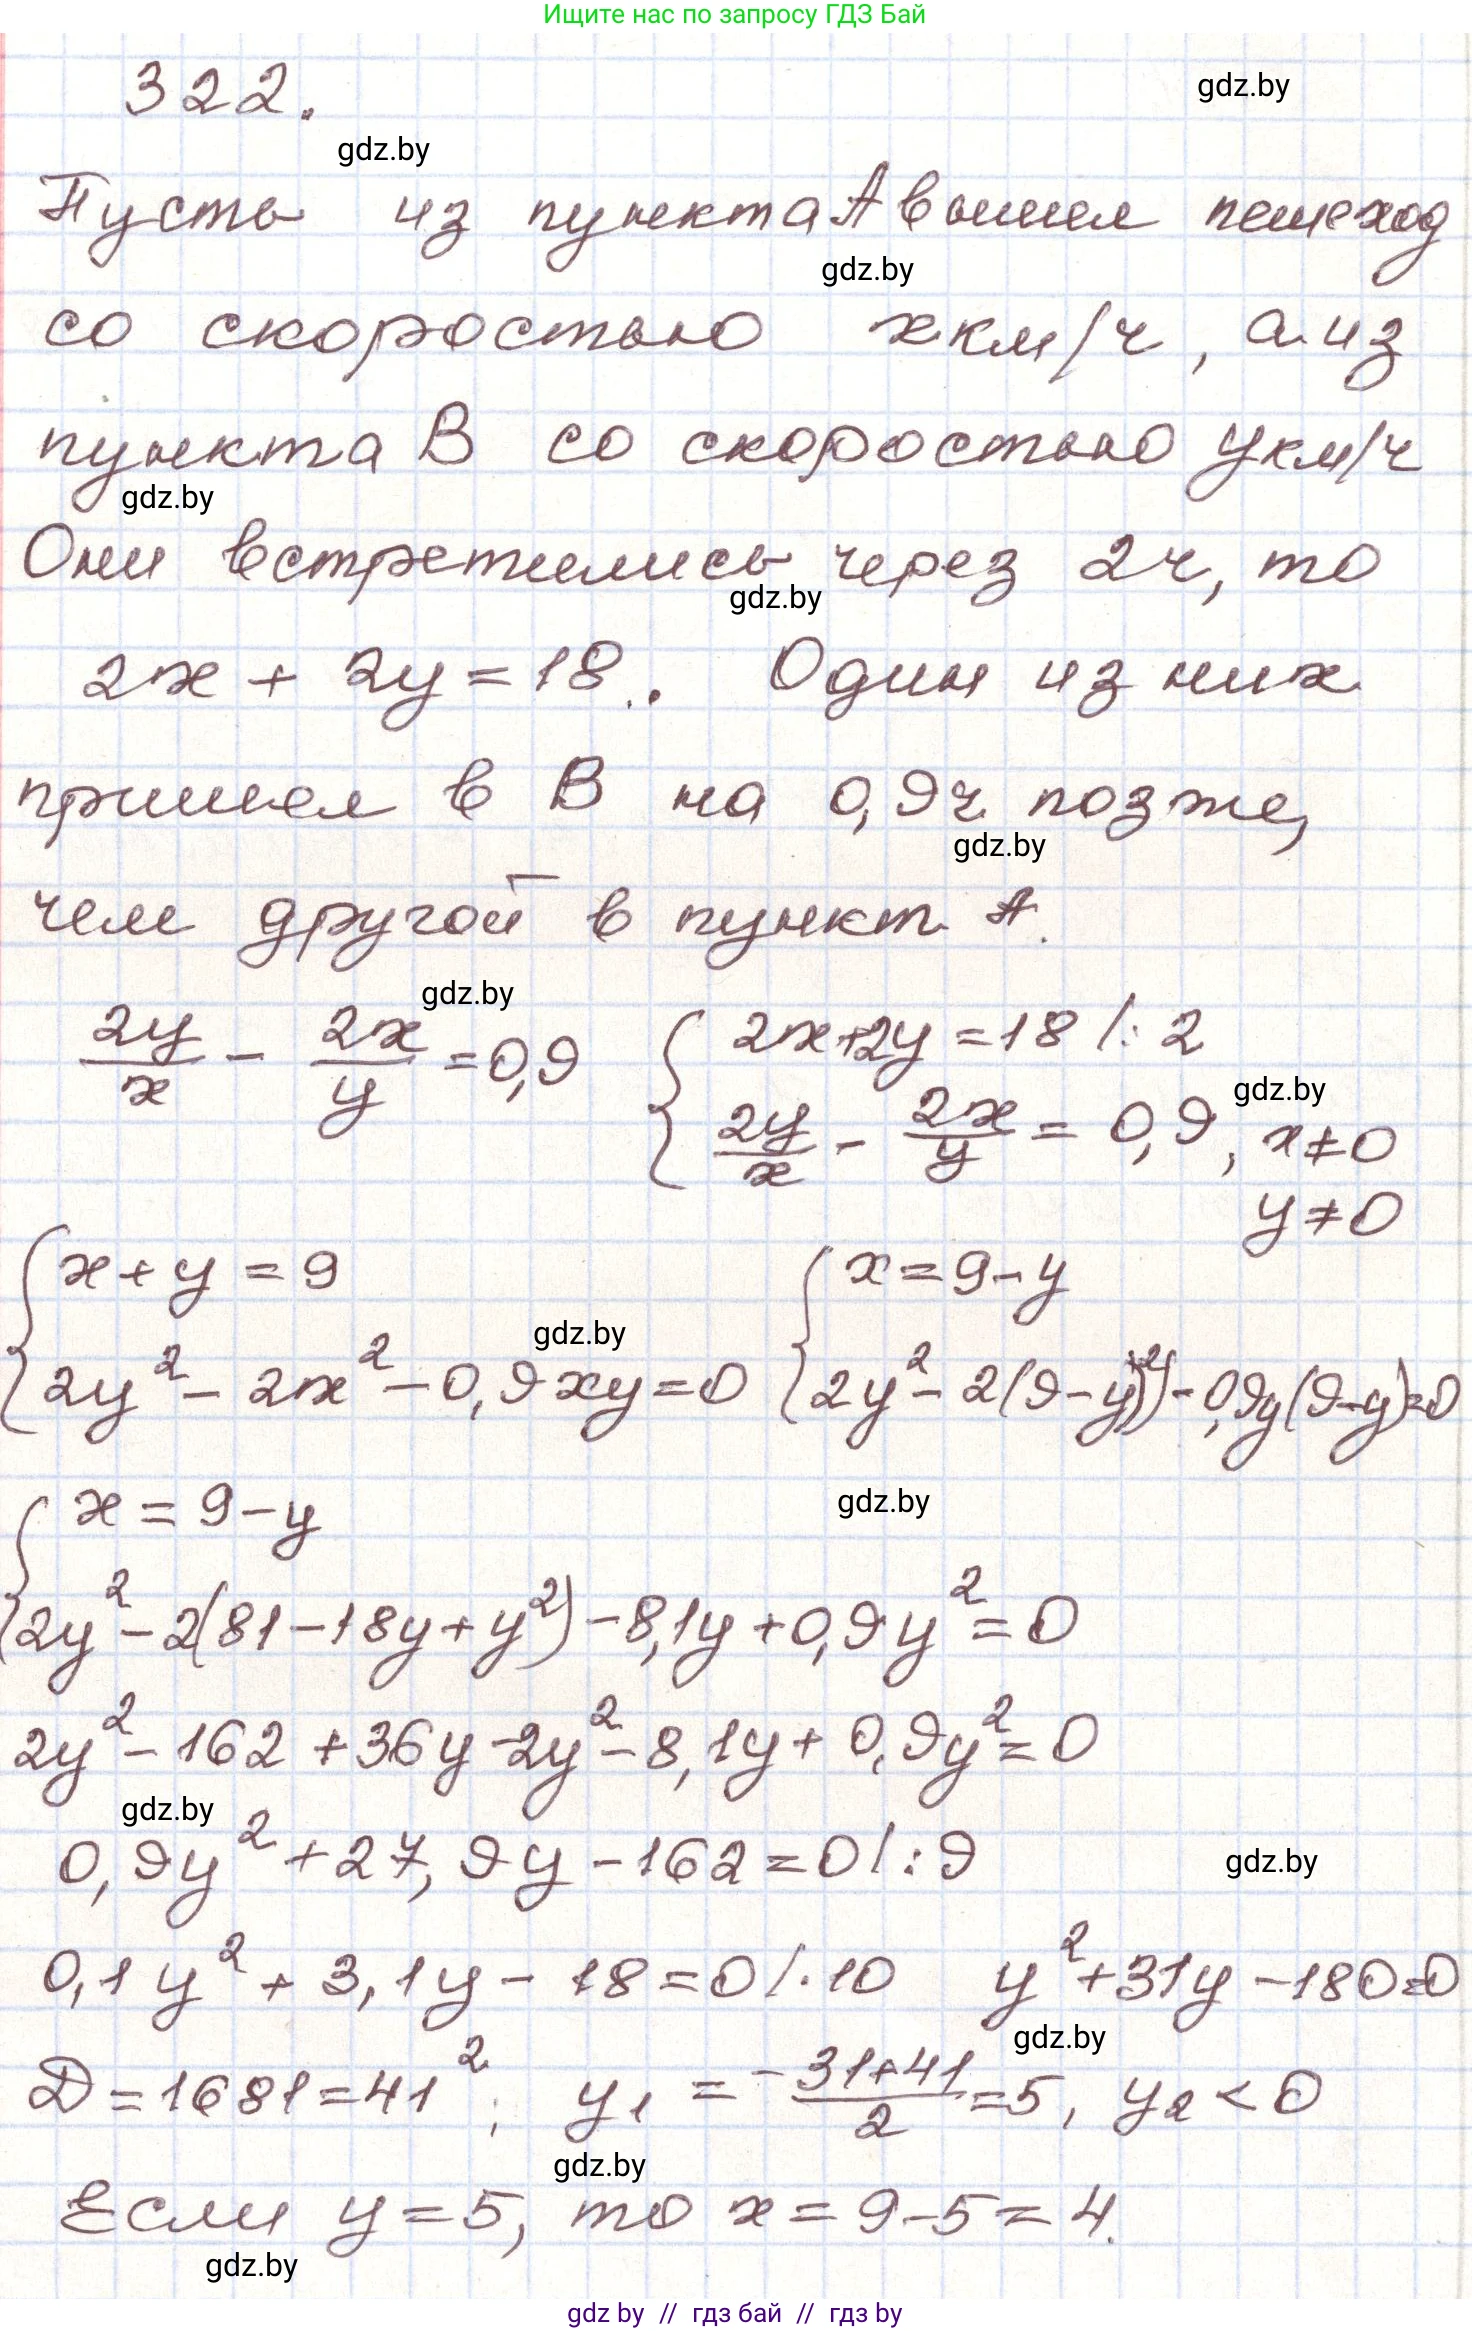 Ищите нас по запросу ГДЗ Бай
322.
gdz.by
gdz.by
Пусть из пункта А вышел пешеход
gdz.by
со скоростью x км/ч, а из
пункта В со скоростью y км/ч
gdz.by
Они встретились через 2ч, то
gdz.by
2x + 2y = 18. Один из них
пришел в В на 0,9ч позже,
gdz.by
чем другой в пункт А.
gdz.by
2y/x - 2x/y = 0,9 { 2x+2y = 18 |:2
gdz.by
2y/x - 2x/y = 0,9, x≠0
y≠0
{ x+y = 9 { x = 9-y
gdz.by
2y² - 2x² - 0,9xy = 0 2y² - 2(9-y)² - 0,9y(9-y)=0
{ x = 9-y
gdz.by
2y² - 2(81-18y+y²) - 8,1y + 0,9y² = 0
2y² - 162 + 36y - 2y² - 8,1y + 0,9y² = 0
gdz.by
0,9y² + 27,9y - 162 = 0 |:9
gdz.by
0,1y² + 3,1y - 18 = 0 |·10 y² + 31y - 180 = 0
gdz.by
D = 1681 = 41²; y₁ = (-31+41)/2 = 5, y₂ < 0
gdz.by
Если y = 5, то x = 9-5 = 4.
gdz.by
gdz by // гдз бай // гдз by